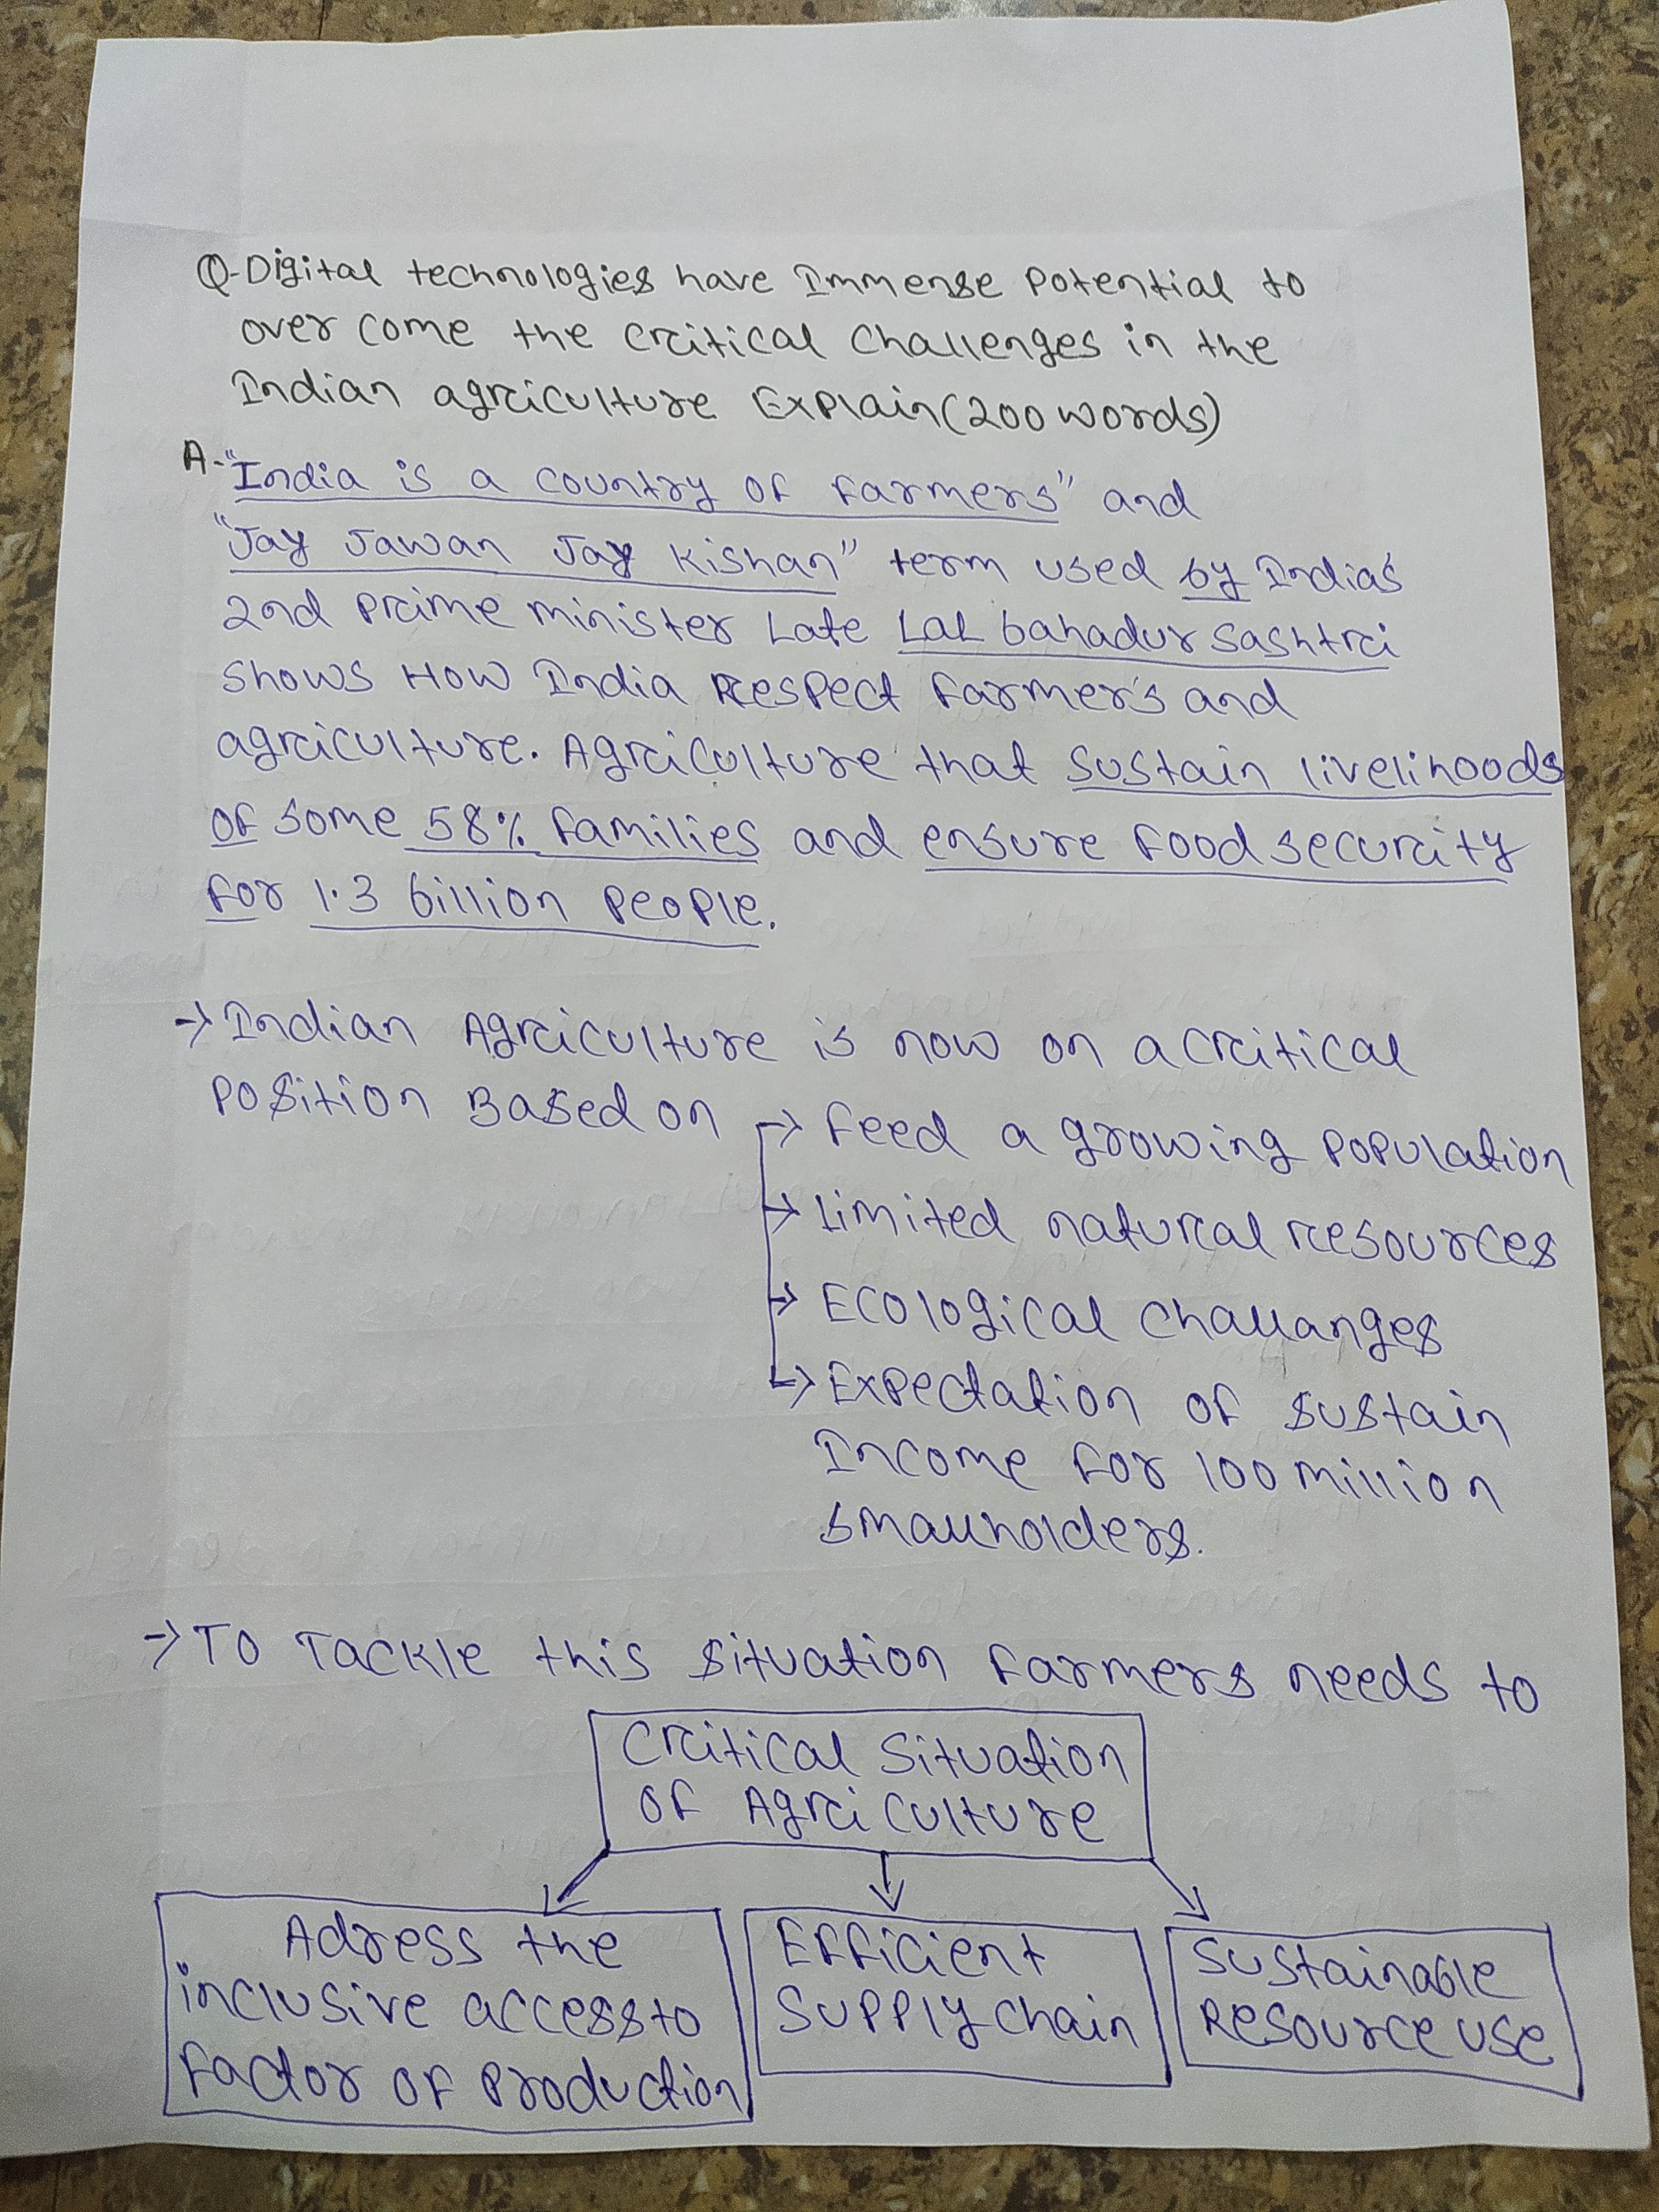 Q-Digital technologies have Immense Potential to
over come the critical challenges in the
Indian agriculture Explain (200 words)
A-"India is a country of farmers" and
"Jay Jawan Jay Kishan" term used by India's
2nd Prime minister Late Lal bahadur Sashtri
shows How India Respect farmer's and
agriculture. Agriculture that sustain livelihoods
of some 58% families and ensure food security
for 1.3 billion people.
→ Indian Agriculture is now on a critical
Position Based on → feed a growing population
→ Limited natural resources
→ Ecological challanges
→ Expectation of sustain
Income for 100 million
smallholders.
→ To Tackle this situation farmers needs to
Critical Situation
of Agriculture
Adress the
inclusive access to
factor of production
Efficient
Supply chain
Sustainable
Resource use